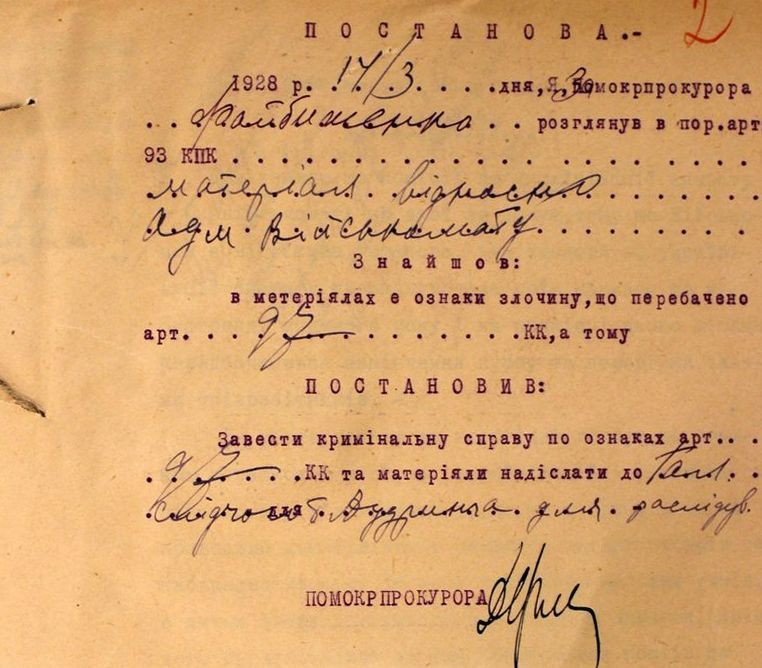 2
ПОСТАНОВА.-
1928 р. 17/3 . . . . дня, Я, помокрпрокурора
розглянув в пор.арт
93 КПК
матеріали відносно
Адм Військомату
Знайшов:
в метеріялах е ознаки злочину, що перебачено
арт. 97 КК, а тому
ПОСТАНОВИВ:
Завести кримінальну справу по ознаках арт..
97 КК та матеріяли надіслати до
для для розслідув.
ПОМОКРПРОКУРОРА